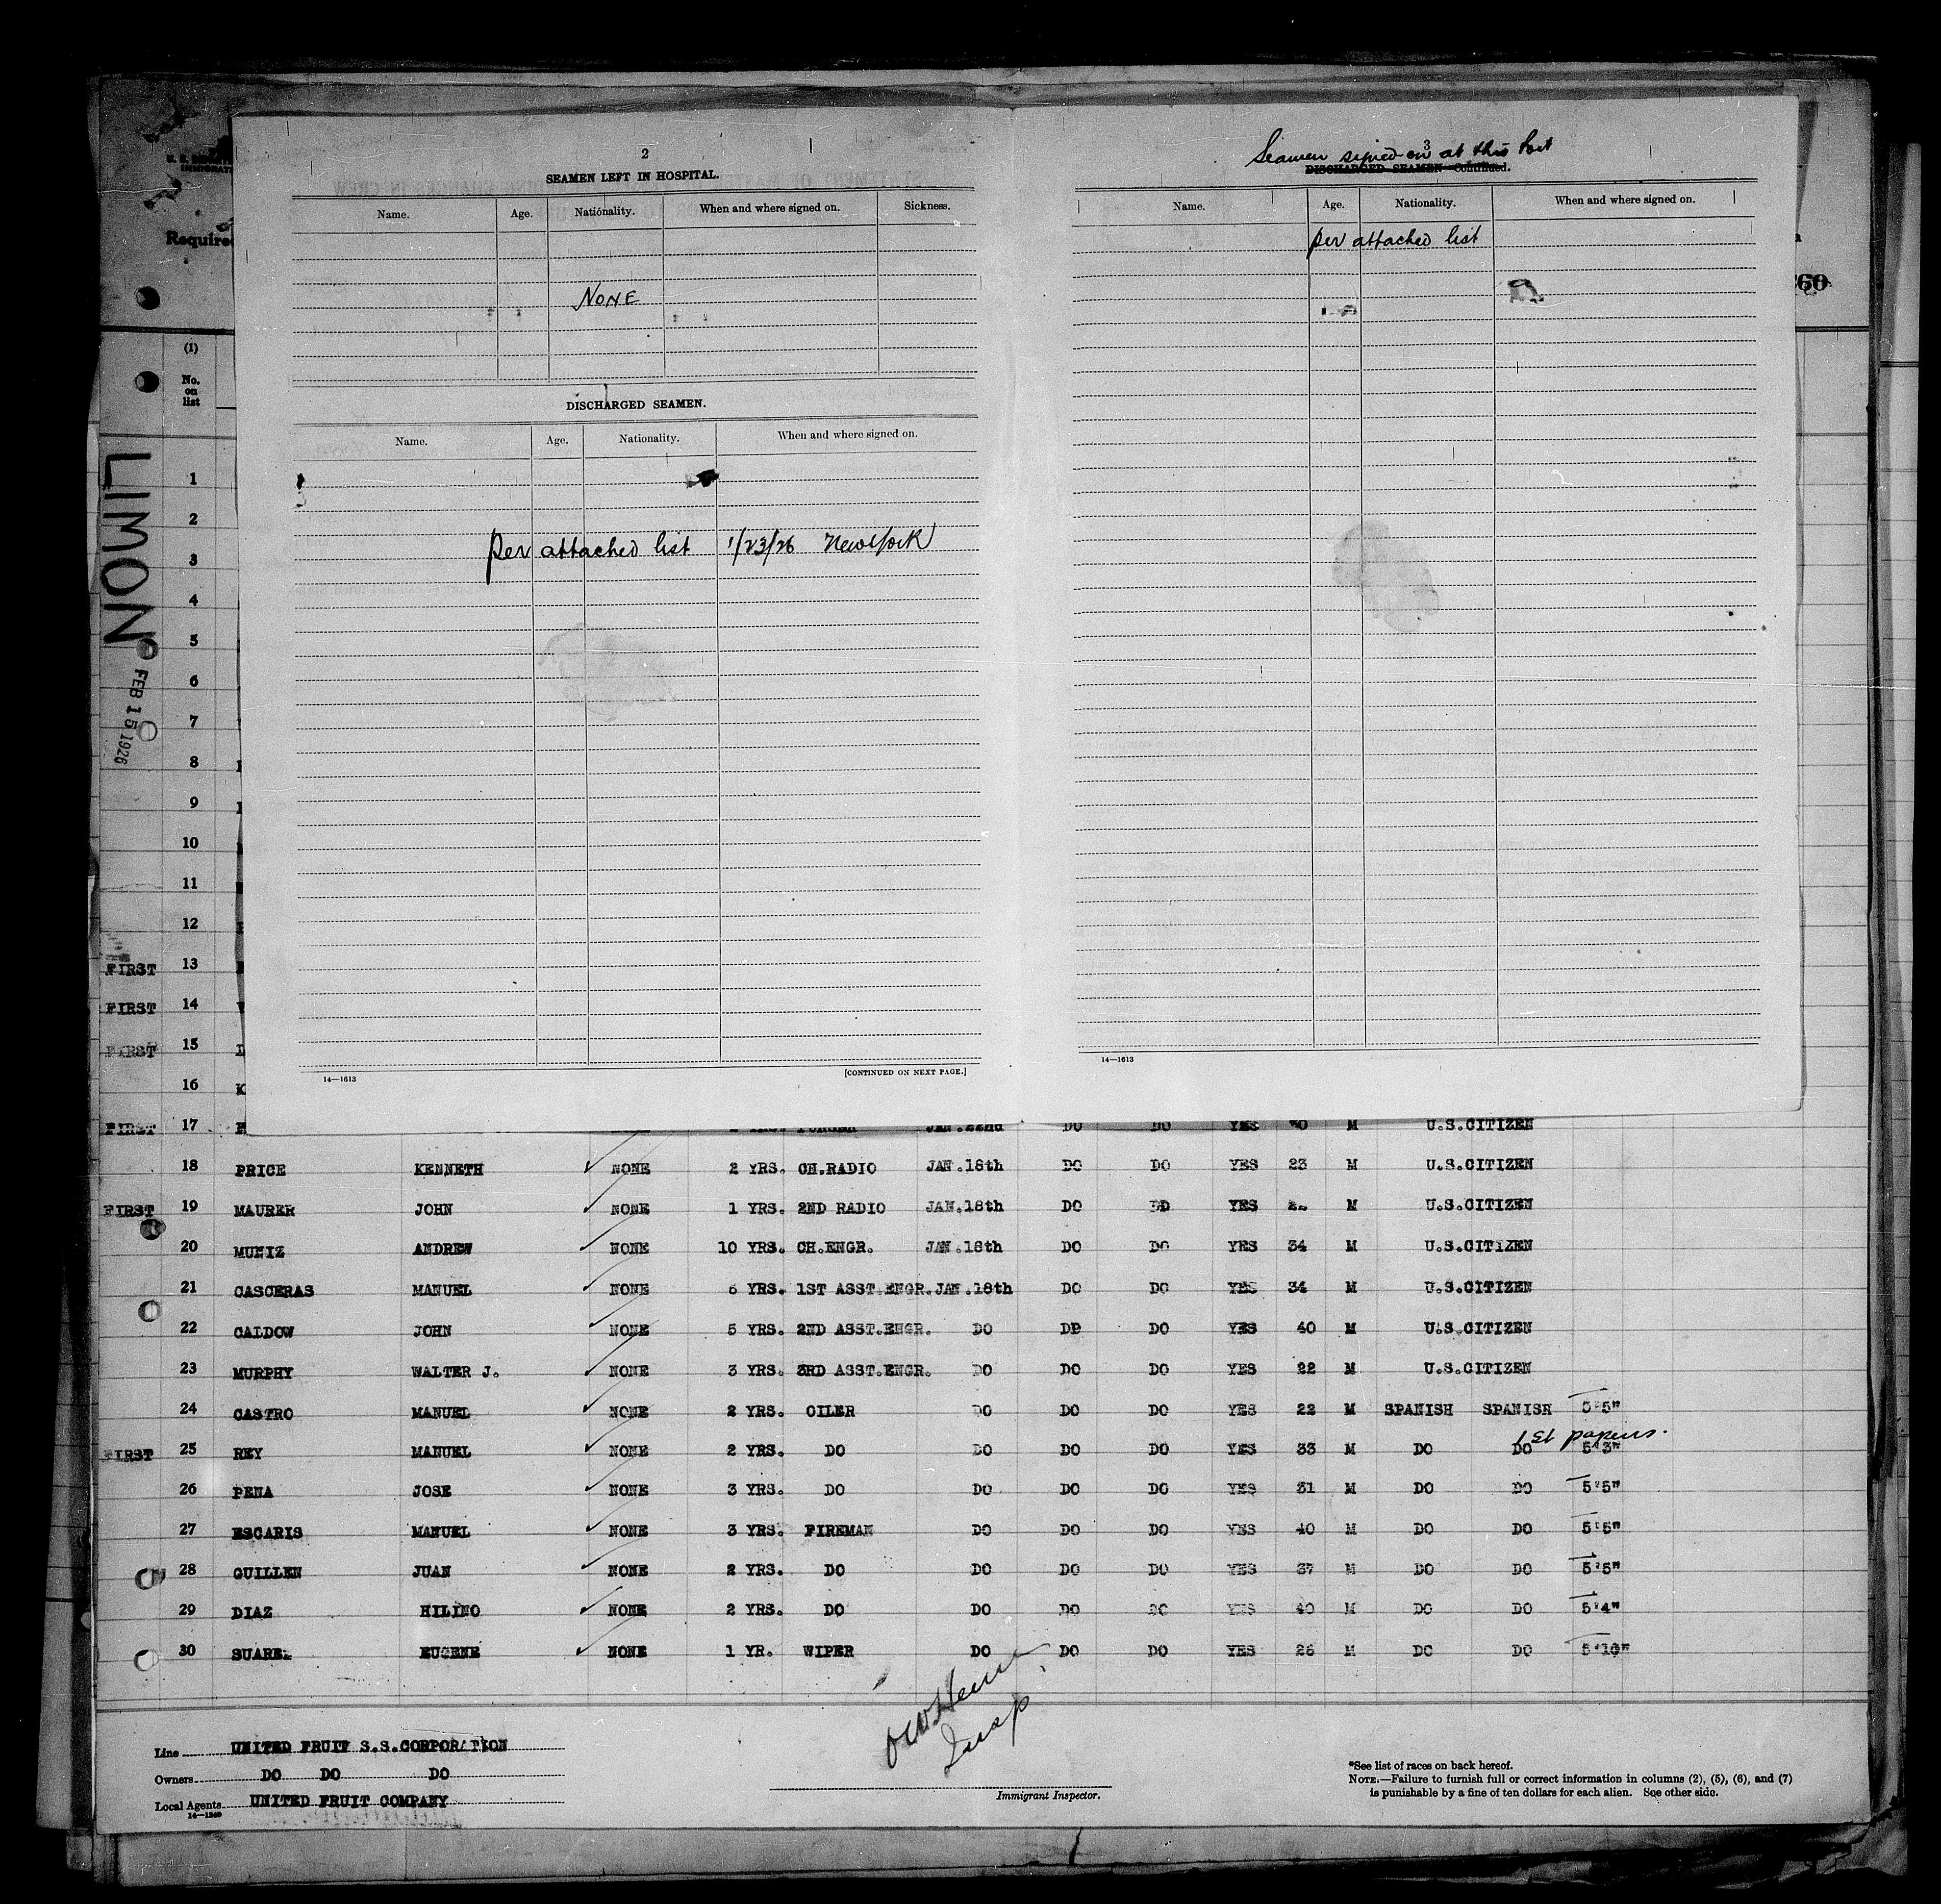 2
SEAMEN LEFT IN HOSPITAL.
Name. Age. Nationality. When and where signed on. Sickness.
NONE
DISCHARGED SEAMEN.
Name. Age. Nationality. When and where signed on.
per attached list 1/23/26 New York
14—1613
[CONTINUED ON NEXT PAGE.]
3
Seamen signed on at this Port
DISCHARGED SEAMEN—Continued.
Name. Age. Nationality. When and where signed on.
per attached list
14—1613
Required
60
(1)
No. on list
LIMON
FEB 15 1926
1
2
3
4
5
6
7
8
9
10
11
12
FIRST 13
FIRST 14
FIRST 15
16 K
FIRST 17 JAN.22nd DO DO YES 30 M U.S.CITIZEN
18 PRICE KENNETH NONE 2 YRS. CH.RADIO JAN.18th DO DO YES 23 M U.S.CITIZEN
FIRST 19 MAURER JOHN NONE 1 YRS. 2ND RADIO JAN.18th DO DO YES M U.S.CITIZEN
20 MUNIZ ANDREW NONE 10 YRS. CH.ENGR. JAN.18th DO DO YES 34 M U.S.CITIZEN
21 CASCERAS MANUEL NONE 6 YRS. 1ST ASST.ENGR. JAN.18th DO DO YES 34 M U.S.CITIZEN
22 CALDOW JOHN NONE 5 YRS. 2ND ASST.ENGR. DO DO DO YES 40 M U.S.CITIZEN
23 MURPHY WALTER J. NONE 3 YRS. 3RD ASST.ENGR. DO DO DO YES 22 M U.S.CITIZEN
24 CASTRO MANUEL NONE 2 YRS. OILER DO DO DO YES 22 M SPANISH SPANISH 5'5"
1st papers.
FIRST 25 REY MANUEL NONE 2 YRS. DO DO DO DO YES 33 M DO DO 5'3"
26 PENA JOSE NONE 3 YRS. DO DO DO DO YES 31 M DO DO 5'5"
27 ESCARIS MANUEL NONE 3 YRS. FIREMAN DO DO DO YES 40 M DO DO 5'5"
28 GUILLEN JUAN NONE 2 YRS. DO DO DO DO YES 37 M DO DO 5'5"
29 DIAZ HILINO NONE 2 YRS. DO DO DO DO YES 40 M DO DO 5'4"
30 SUAREZ EUGENE NONE 1 YR. WIPER DO DO DO YES 26 M DO DO 5'10"
Insp.
Line UNITED FRUIT S.S.CORPORATION
Owners DO DO DO
Local Agents UNITED FRUIT COMPANY
14—1240
Immigrant Inspector.
*See list of races on back hereof.
NOTE.—Failure to furnish full or correct information in columns (2), (5), (6), and (7)
is punishable by a fine of ten dollars for each alien. See other side.